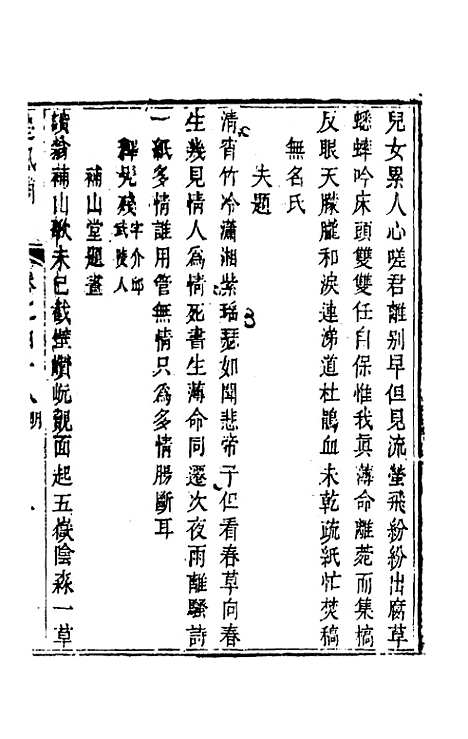 兒女累人心嗟君離别早但見流螢飛紛紛出腐草
蟋蟀吟床頭雙雙任自保惟我真薄命離菀而集槁
反眼天朦朧和淚連涕道杜鵑血未乾疏紙忙焚稿
無名氏
失題
清宵竹冷瀟湘紫瑶瑟如聞悲帝子但看春草向春
生幾見情人為情死書生薄命同遷次夜雨離騷詩
一紙多情誰用管無情只為多情腸斷耳
釋 字介邱 武陵人
補山堂題畫
補山歌未已截壁巑岏覿面起五嶽陰森一草
卷之四十八 明